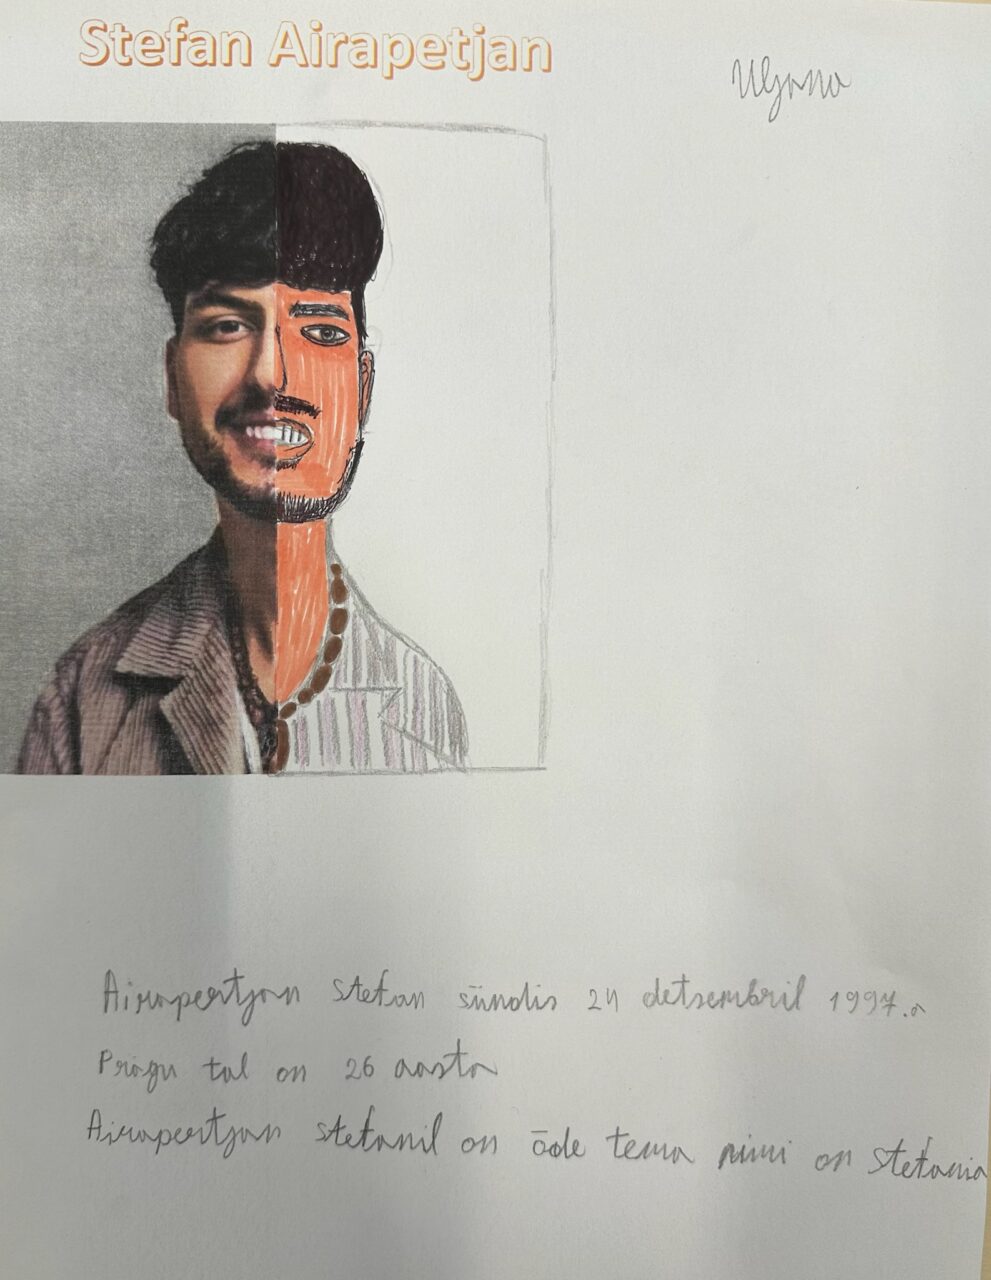 Stefan Airapetjan
Uljana
Airapeertjan Stefan sündis 24 detsembril 1997.a
Prägu tal on 26 aasta
Airapeertjan Stefanil on õde tema nimi on Stefania